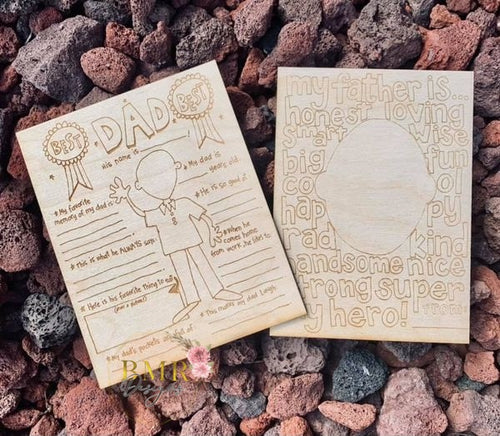 BEST
DAD
BEST
his name is
*My favorite
memory of my dad is
*My dad is
years old.
*He is so good at
*This is what he ALWAYS says:
*When he
comes home
from work, he likes to
*Here is his favorite thing to eat
*This makes my dad laugh:
*My dad's pockets are full of
my father is...
honest loving
smart wise
big fun
co ol
hap py
rad kind
handsome nice
strong super
my hero!
from:
BMR